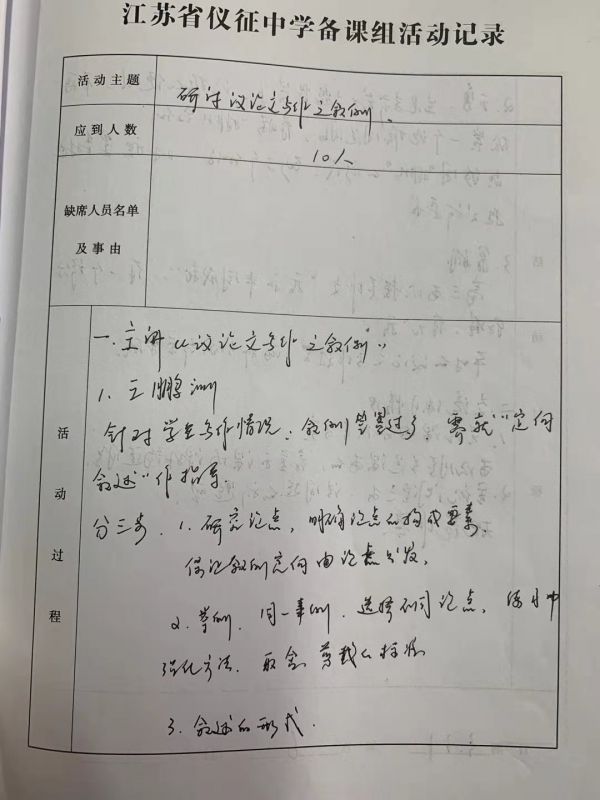 江苏省仪征中学备课组活动记录
活动主题
研讨议论文写作之叙例.
应到人数
10人
缺席人员名单
及事由
活动过程
一.主讲《议论文写作之叙例》
1.王鹏
针对学生写作情况:叙例过多,需就"定向
叙述"作指导.
分三步.1.研究论点,明确论点的构成要素,
保证叙例定向由论点出发.
2.举例.同一事例.选择不同论点,
强化方法.取舍剪裁的
3.叙述的形式.